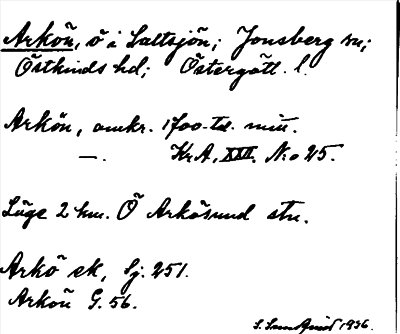 Arkön, ö i Saltsjön; Jonsberg sn;
Östkinds hd; Östergötl. l.
Arkön, omkr. 1700-ta. mitt.
—. KrA, XVII. No 25.
Läge 2 km. Ö Arkösund stn.
Arkö sk, Sj. 251.
Arkön G. 56.
1936.